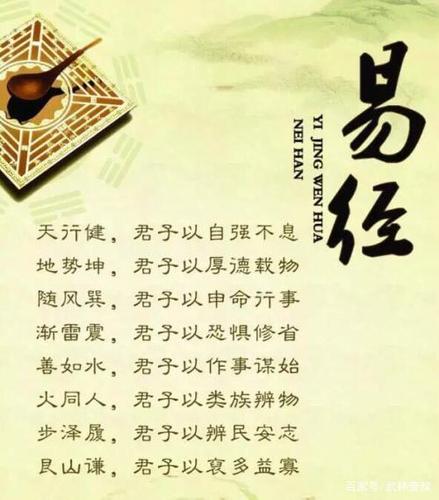 易经
YI JING WEN HUA
NEI HAN
天行健，君子以自强不息
地势坤，君子以厚德载物
随风巽，君子以申命行事
渐雷震，君子以恐惧修省
善如水，君子以作事谋始
火同人，君子以类族辨物
步泽履，君子以辨民安志
艮山谦，君子以裒多益寡
百家号/武林